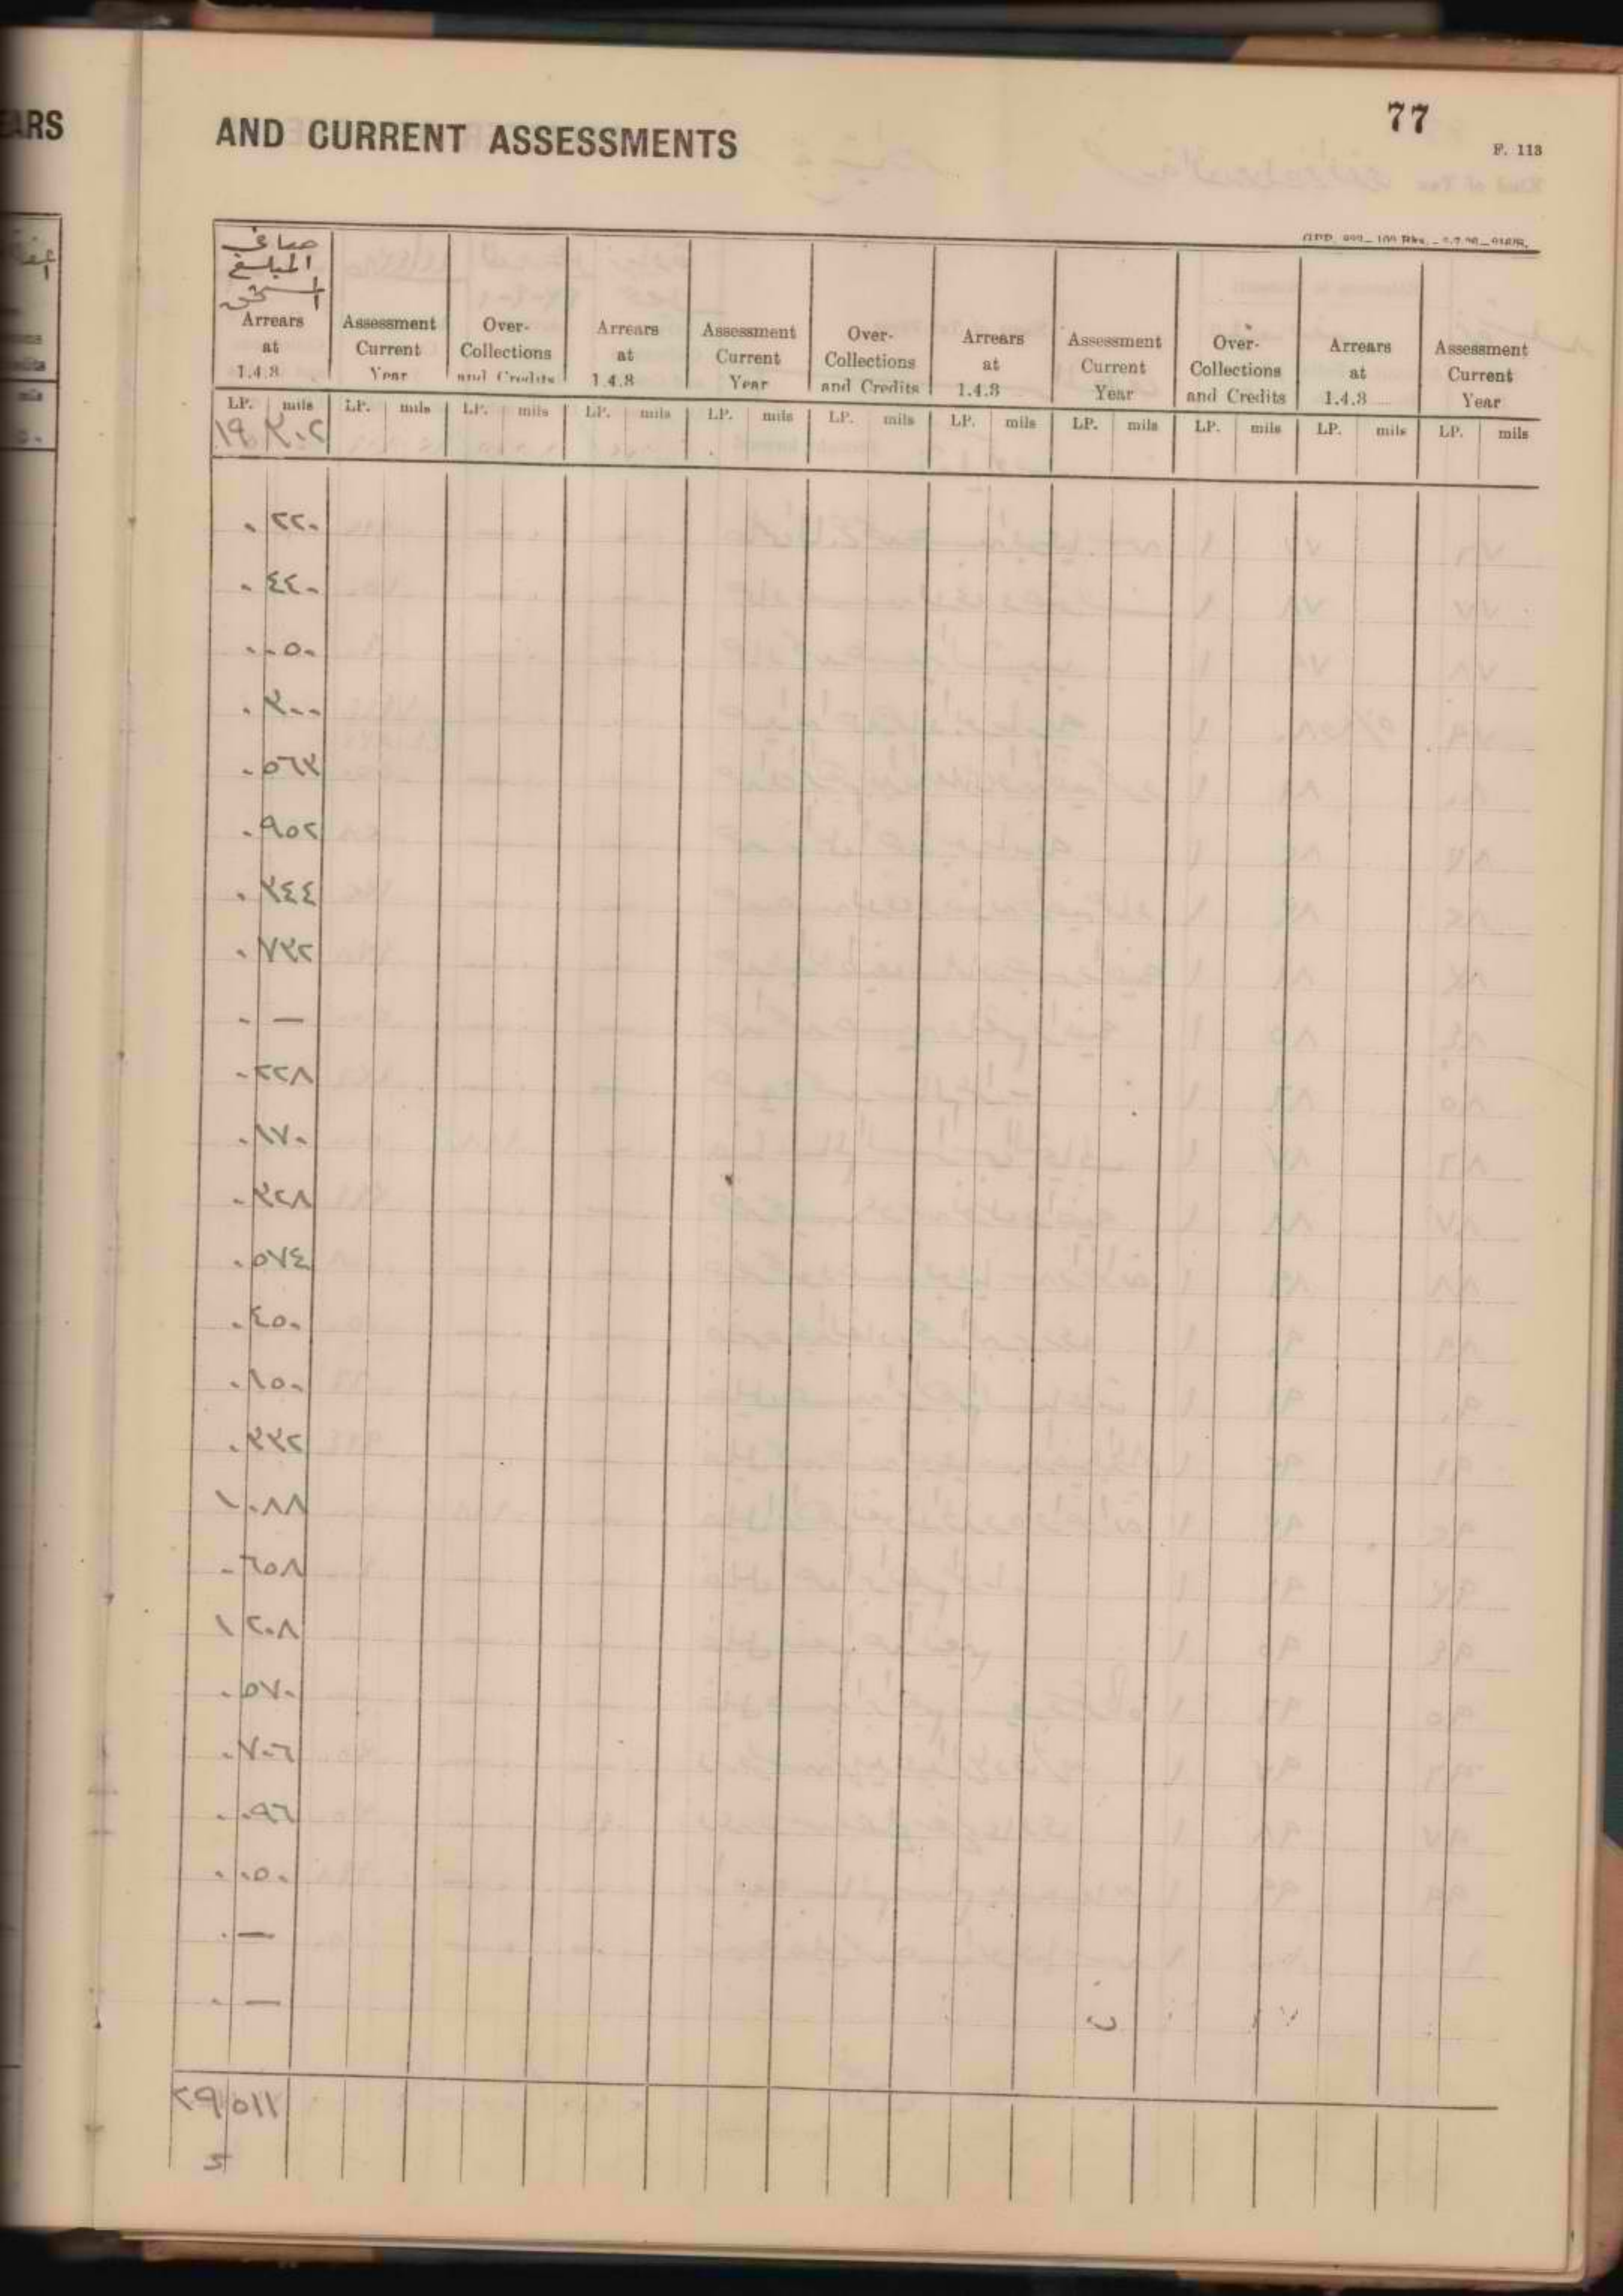 ARS
AND CURRENT ASSESSMENTS
77
F. 113
صافي
المبلغ
المستحق
Arrears at 1.4.3 | Assessment Current Year | Over-Collections and Credits | Arrears at 1.4.3 | Assessment Current Year | Over-Collections and Credits | Arrears at 1.4.3 | Assessment Current Year | Over-Collections and Credits | Arrears at 1.4.3 | Assessment Current Year
LP. mils LP. mils LP. mils LP. mils LP. mils LP. mils LP. mils LP. mils LP. mils LP. mils LP. mils
١٩ ٣٠٢
٠ ٢٢٠
٠ ٤٤٠
٠ ٠٥٠
٠ ٣٠٠
٠ ٥٦٣
٠ ٩٥٢
٠ ٣٤٤
٠ ٧٣٢
٠ —
٠ ٢٢٨
٠ ١٧٠
٠ ٣٢٨
٠ ٥٧٤
٠ ٤٥٠
٠ ١٥٠
٠ ٣٣٢
١ ٠٨٨
٠ ٦٥٨
١ ٢٠٨
٠ ٥٧٠
٠ ٧٠٦
٠ ٠٩٦
٠ ٠٥٠
٠ —
٠ —
٢٩ ٥١١